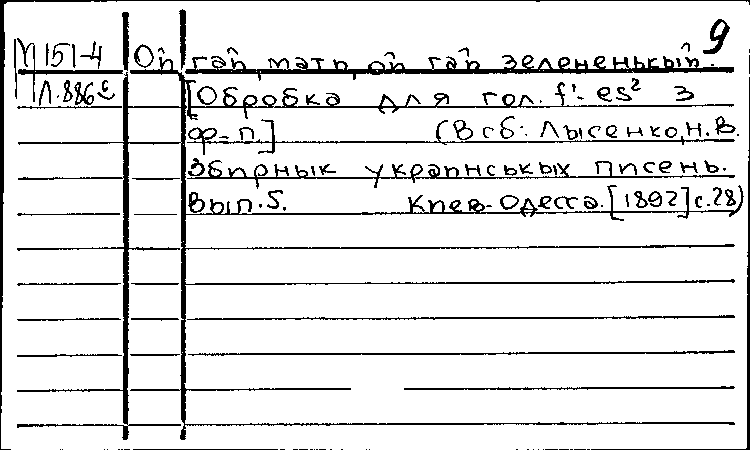 9
М 151-4 Ой гай, мати, ой гай зелененькый.
Л.886е [Обробка для гол. f¹- es² з
ф-п.] (В сб: Лысенко, Н.В.
Збирнык украинськых писень.
Вып.5. Киев-Одесса. [1892] с.28)